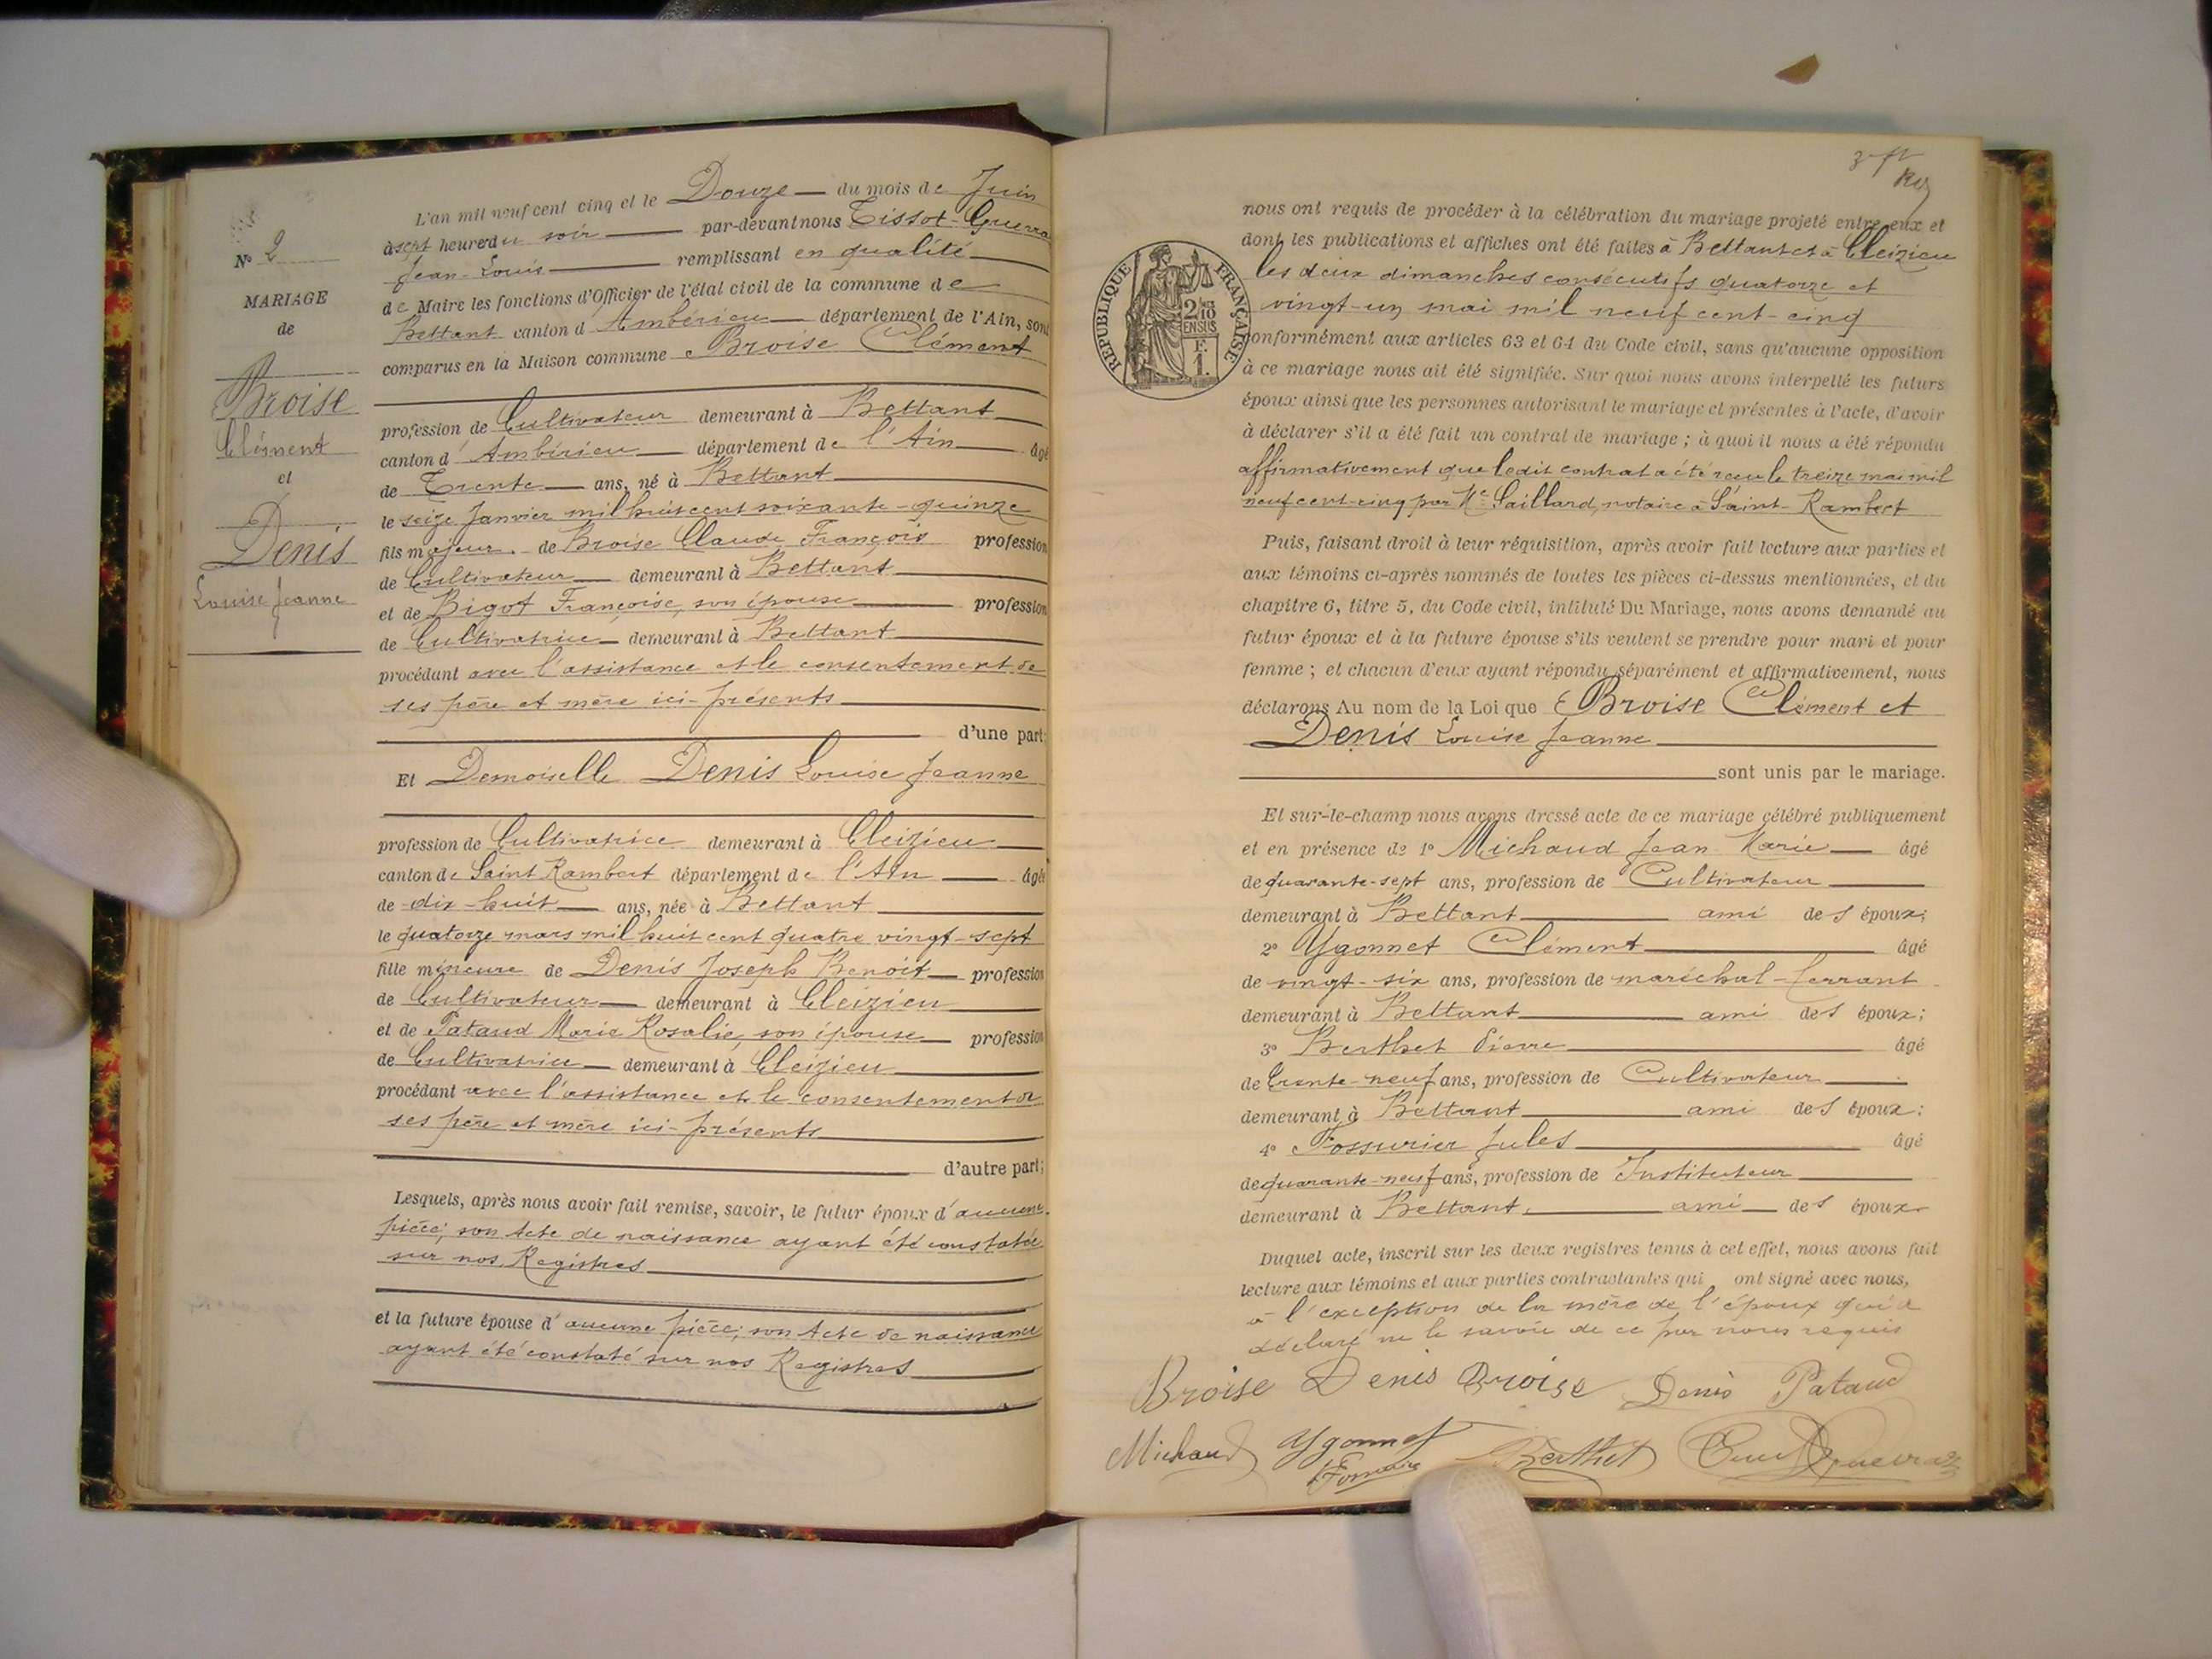 N° 2
MARIAGE
de
Broise
Clément
et
Denis
Louise Jeanne
L'an mil neuf cent cinq et le Douze du mois de Juin
à sept heures du soir par-devant nous Tissot-Guerra
Jean-Louis remplissant en qualité
de Maire les fonctions d'Officier de l'état civil de la commune de
Bettant canton d'Ambérieu département de l'Ain, sont
comparus en la Maison commune Broise Clément
profession de Cultivateur demeurant à Bettant
canton d'Ambérieu département de l'Ain âgé
de Trente ans, né à Bettant
le seize Janvier mil huit cent soixante-quinze
fils majeur de Broise Claude François profession
de Cultivateur demeurant à Bettant
et de Bigot Françoise, son épouse profession
de Cultivatrice demeurant à Bettant
procédant avec l'assistance et le consentement de
ses père et mère ici-présents
d'une part;
Et Demoiselle Denis Louise Jeanne
profession de Cultivatrice demeurant à Cleizieu
canton de Saint Rambert département de l'Ain âgée
de dix-huit ans, née à Bettant
le quatorze mars mil huit cent quatre vingt-sept
fille mineure de Denis Joseph Benoit profession
de Cultivateur demeurant à Cleizieu
et de Pataud Marie Rosalie, son épouse profession
de Cultivatrice demeurant à Cleizieu
procédant avec l'assistance et le consentement de
ses père et mère ici-présents
d'autre part;
Lesquels, après nous avoir fait remise, savoir, le futur époux d'aucune
pièce; son Acte de naissance ayant été constaté
sur nos Registres
et la future épouse d'aucune pièce; son Acte de naissance
ayant été constaté sur nos Registres
RÉPUBLIQUE FRANÇAISE
2/10
EN SUS
F.
1.
nous ont requis de procéder à la célébration du mariage projeté entre eux et
dont les publications et affiches ont été faites à Bettant et à Cleizieu
les deux dimanches consécutifs quatorze et
vingt-un mai mil neuf cent-cinq
conformément aux articles 63 et 64 du Code civil, sans qu'aucune opposition
à ce mariage nous ait été signifiée. Sur quoi nous avons interpellé les futurs
époux ainsi que les personnes autorisant le mariage et présentes à l'acte, d'avoir
à déclarer s'il a été fait un contrat de mariage ; à quoi il nous a été répondu
affirmativement que ledit contrat a été reçu le treize mai mil
neuf cent-cinq par Me Gaillard, notaire à Saint-Rambert
Puis, faisant droit à leur réquisition, après avoir fait lecture aux parties et
aux témoins ci-après nommés de toutes les pièces ci-dessus mentionnées, et du
chapitre 6, titre 5, du Code civil, intitulé Du Mariage, nous avons demandé au
futur époux et à la future épouse s'ils veulent se prendre pour mari et pour
femme ; et chacun d'eux ayant répondu séparément et affirmativement, nous
déclarons Au nom de la Loi que Broise Clément et
Denis Louise Jeanne
sont unis par le mariage.
Et sur-le-champ nous avons dressé acte de ce mariage célébré publiquement
et en présence de 1° Michaud Jean Marie âgé
de quarante-sept ans, profession de Cultivateur
demeurant à Bettant ami des époux;
2° Ygonnet Clément âgé
de vingt-six ans, profession de maréchal-ferrant
demeurant à Bettant ami des époux;
3° Berthet Pierre âgé
de trente-neuf ans, profession de Cultivateur
demeurant à Bettant ami des époux;
4° Fossurier Jules âgé
de quarante-neuf ans, profession de Instituteur
demeurant à Bettant ami des époux
Duquel acte, inscrit sur les deux registres tenus à cet effet, nous avons fait
lecture aux témoins et aux parties contractantes qui ont signé avec nous,
à l'exception de la mère de l'époux qui a
déclaré ne le savoir de ce par nous requis
Broise Denis Broise Denis Pataud
Michaud Ygonnet Berthet